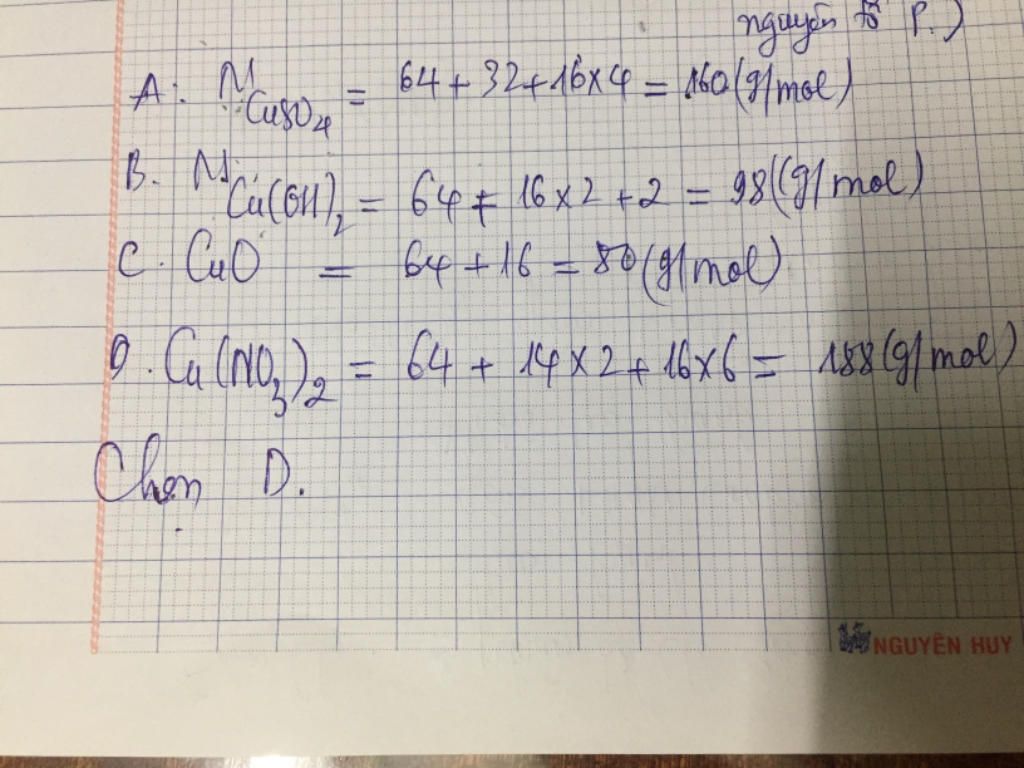 nguyên tố P.)
A: M CuSO4 = 64 + 32 + 16 x 4 = 160 (g/mol)
B. M Cu(OH)2 = 64 + 16 x 2 + 2 = 98 ((g/mol)
C. CuO = 64 + 16 = 80 (g/mol)
D. Cu(NO3)2 = 64 + 14 x 2 + 16 x 6 = 188 (g/mol)
Chọn D.
NGUYÊN HUY